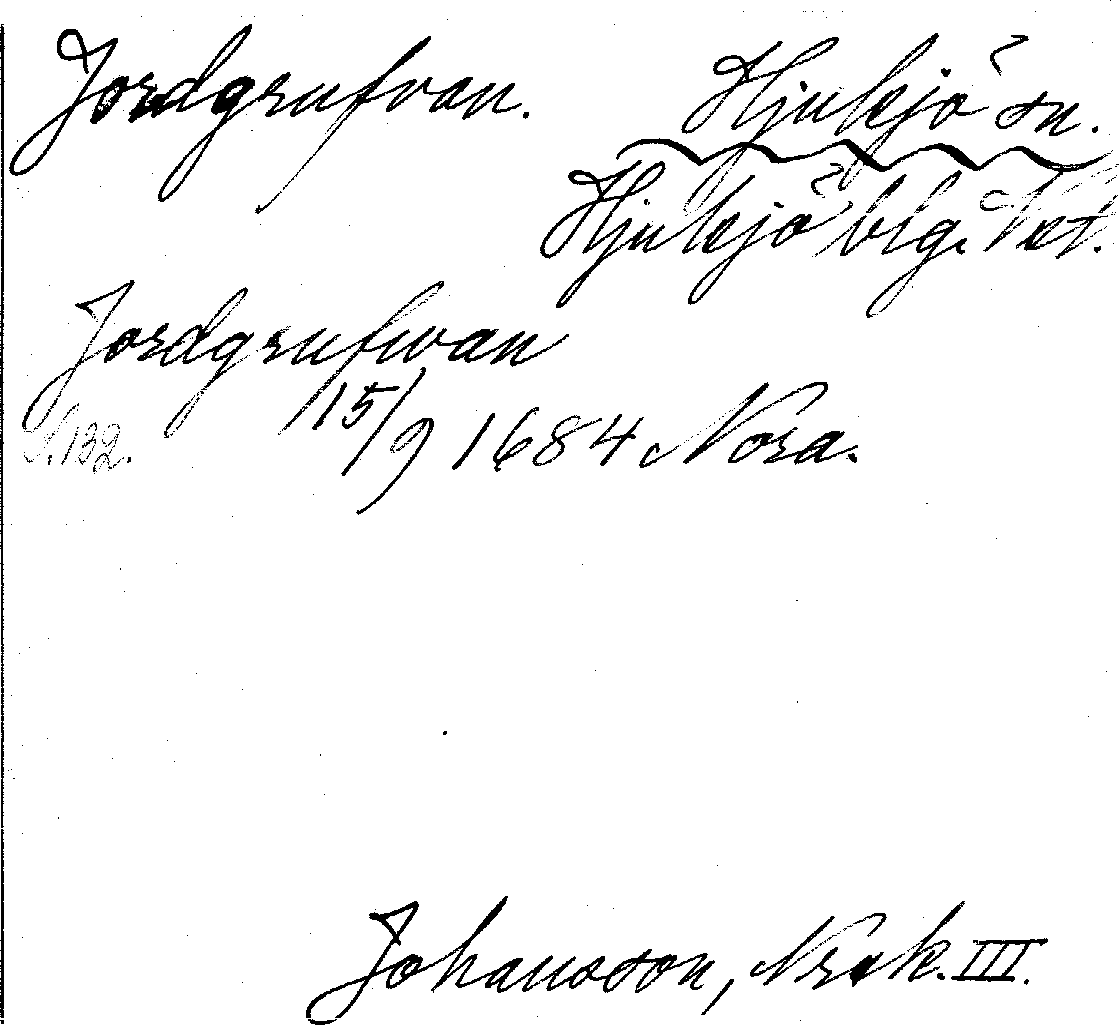 Jordgrufvan. Hjulsjö sn.
Hjulsjö blg. Vet.
Jordgrufwan
S. 132. 15/9 1684 Nora.
Johansson, Nrsk. III.